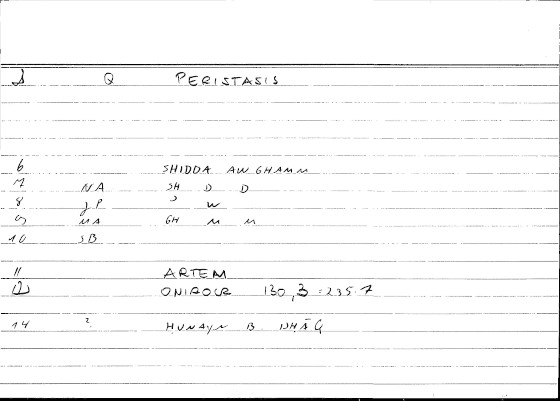 Q PERISTASIS
6 SHIDDA AW GHAMM
7 NA SH D D
8 JP ʾ W
9 MA GH M M
10 SB
11 ARTEM
12 ONIROCR 130,3 = 235.7
14 ? HUNAYN B. ISHĀQ